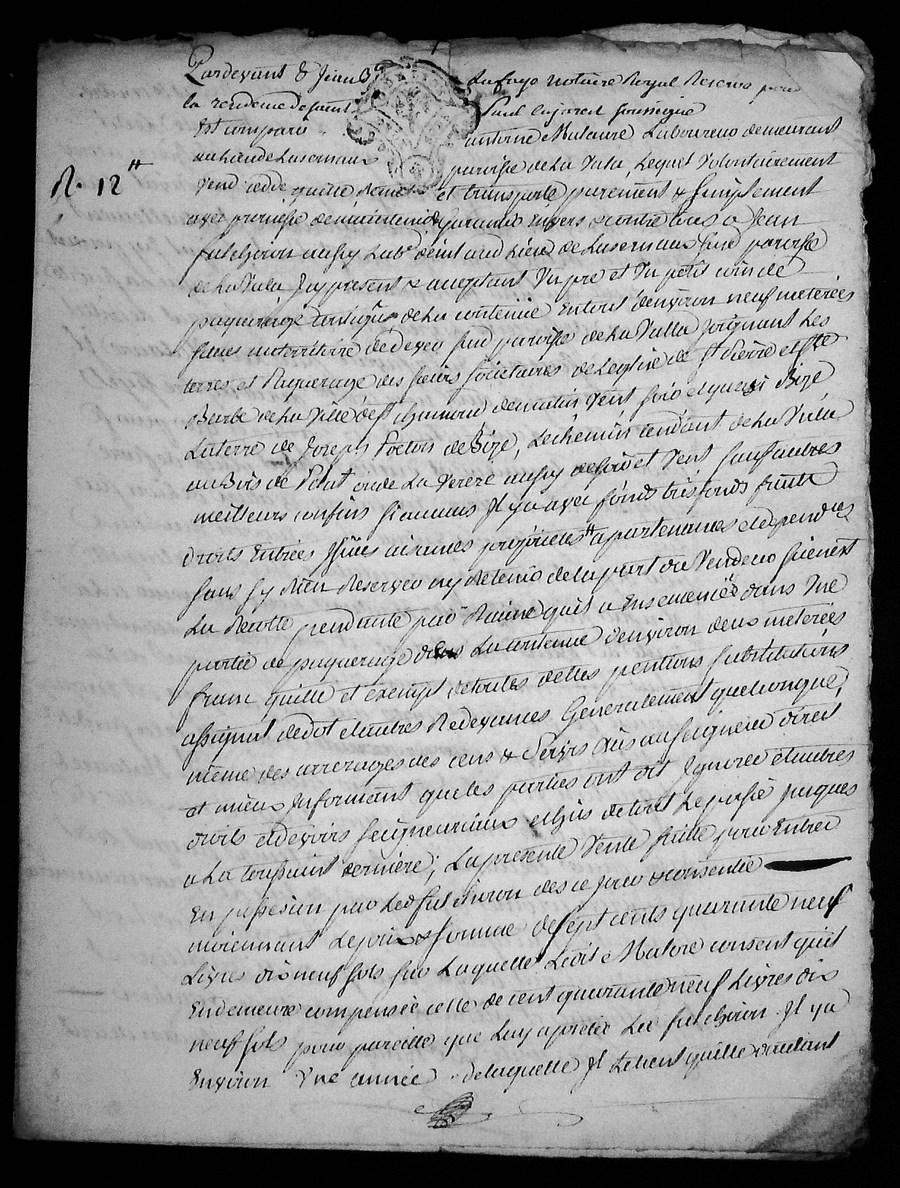 Pardevant & Jean Bte Dufayo notaire Royal Reservé pour
la residence de saint Paul en jarest soussigné
Est comparu antoine Mataure Laboureur demeurant
au lieu de Luzernaux paroisse de La Vala, Lequel Volontairement
R. 12 ᵗᵗ
Vend cedde quitte demet et transporte purement & simplement
avec promesse de maintenir & Garantir envers & contre tous a Jean
fulchiron aussy Labʳ dudit lieu de Luzernaux susd parroisse
de La Vala Icy present & acceptant Un pre et Un petit coin de
paquerage contigus de La contenue Entout d'environ neuf meterées
situés au territoire de devea susd parroisse de La Valla Joignant Les
terres et Paquerage des sieurs societaires de Leglise de st Pierre et ste
Barbe de La Ville de st chamond de matin Vent soir et quasi Bize
La terre de Joseph de Bize, Le chemin tendant de La Vala
au Bois de Pilat ou de La aussy de soir et Vent sauf autres
meilleurs confins si aucuns Il y a avec fonds tresfonds fruits
droits Entrées Issües aisances proprietés appartenances et dependces
sans sy Rien Reserver ny Retenir de la part du Vendeur si cenest
La Recolte pendante par Racine quil a Ensemencé dans Une
partie de paquerage dans La contenue denviron deux meterées
franc quitte et exempt de toutes dettes pentions substitutions
assignat de dot et autres Redevances Generalement quelconque,
même des arrerages des cens & servis dus au seigneur direct
et mieux Informant que les parties ont dit Ignorer et autres
droits et devoirs seigneuriaux echus de tout Le passé jusques
a La toussaint derniere; La presente Vente faitte pour Entrer
En possession par Led fulchiron des ce jour & consentie
moiennant Le prix & somme de sept cents quarante neuf
Livres dix neuf sols sur Laquelle Ledit Matore consent quil
En demeure compensée celle de cent quarante neuf Livres dix
neuf sols pour pareille que Luy a pretée Led fulchiron Il y a
Environ Une année de laquelle Il Letient quitte dautant